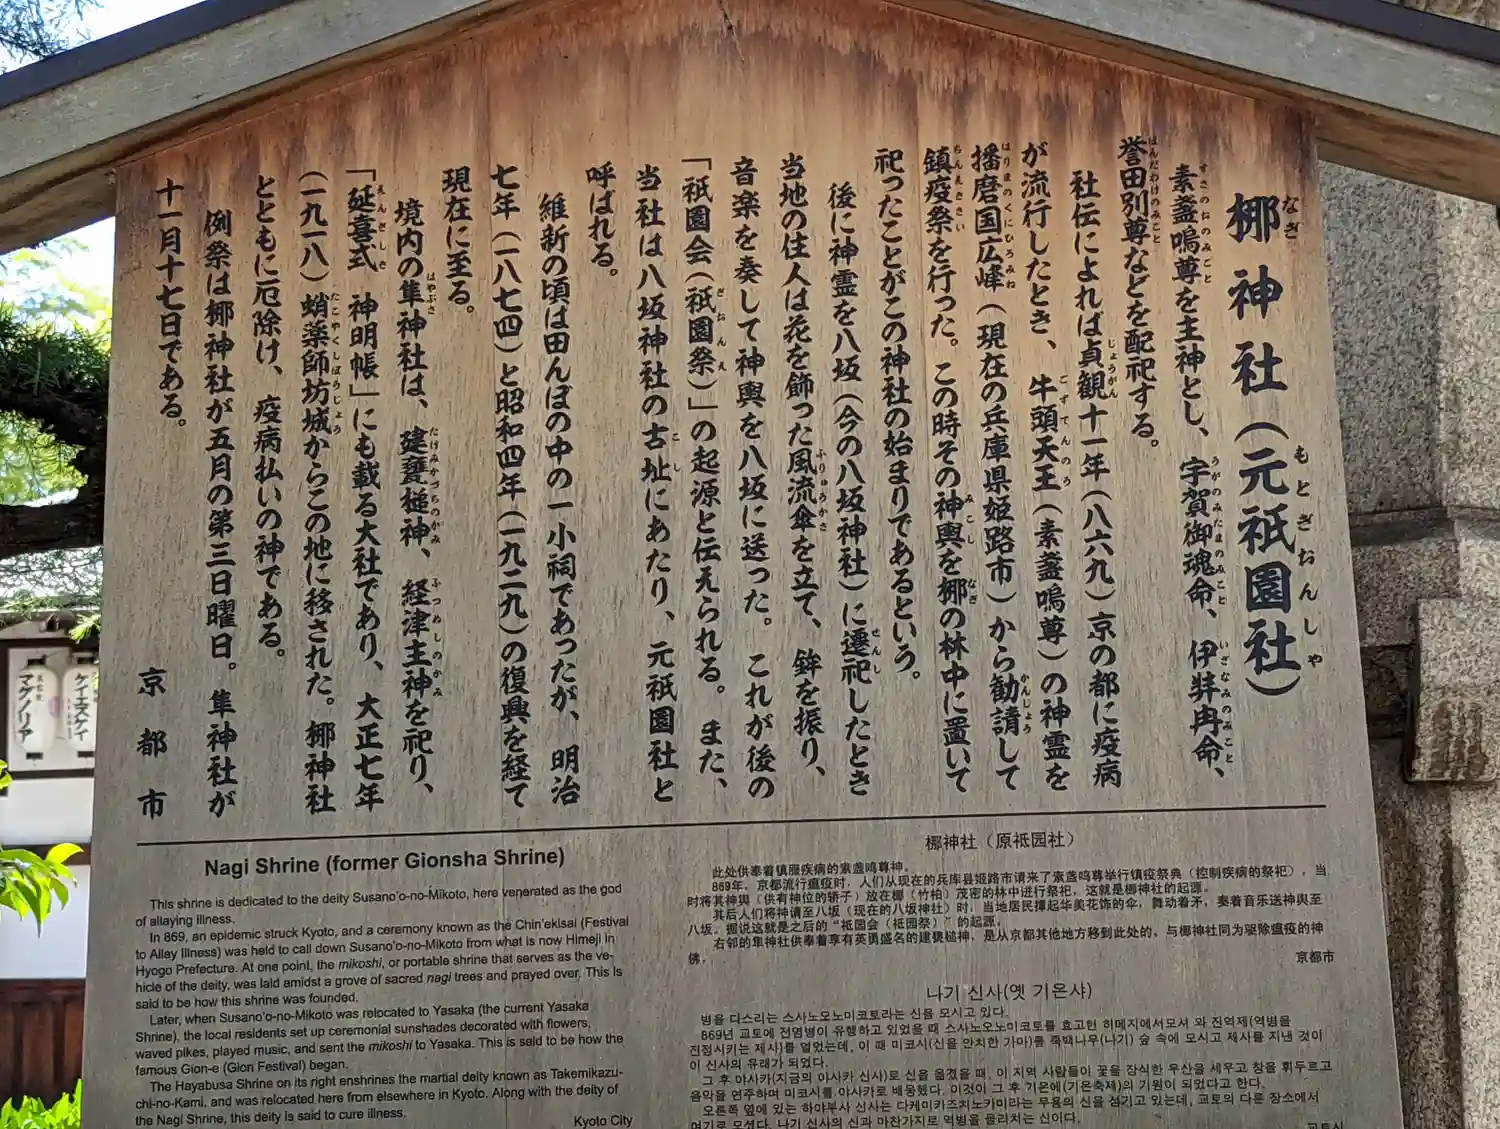 梛神社（元祇園社）
なぎ もとぎおんしゃ
素盞嗚尊を主神とし、宇賀御魂命、伊弉冉命、
すさのおのみこと うがのみたまのみこと いざなみのみこと
誉田別尊などを配祀する。
ほんだわけのみこと
社伝によれば貞観十一年（八六九）京の都に疫病
じょうがん
が流行したとき、牛頭天王（素盞嗚尊）の神霊を
ごずてんのう
播磨国広峰（現在の兵庫県姫路市）から勧請して
はりまのくにひろみね かんじょう
鎮疫祭を行った。この時その神輿を梛の林中に置いて
ちんえきさい みこし なぎ
祀ったことがこの神社の始まりであるという。
後に神霊を八坂（今の八坂神社）に遷祀したとき
せんし
当地の住人は花を飾った風流傘を立て、鉾を振り、
ふりゅうかさ
音楽を奏して神輿を八坂に送った。これが後の
「祇園会（祇園祭）」の起源と伝えられる。また、
ぎおんえ
当社は八坂神社の古址にあたり、元祇園社と
こし
呼ばれる。
維新の頃は田んぼの中の一小祠であったが、明治
七年（一八七四）と昭和四年（一九二九）の復興を経て
現在に至る。
境内の隼神社は、建甕槌神、経津主神を祀り、
はやぶさ たけみかづちのかみ ふつぬしのかみ
「延喜式 神明帳」にも載る大社であり、大正七年
えんぎしき
（一九一八）蛸薬師坊城からこの地に移された。梛神社
たこやくしぼうじょう
とともに厄除け、疫病払いの神である。
例祭は梛神社が五月の第三日曜日。隼神社が
十一月十七日である。
京都市
Nagi Shrine (former Gionsha Shrine)
This shrine is dedicated to the deity Susano'o-no-Mikoto, here venerated as the god
of allaying illness.
In 869, an epidemic struck Kyoto, and a ceremony known as the Chin'ekisai (Festival
to Allay Illness) was held to call down Susano'o-no-Mikoto from what is now Himeji in
Hyogo Prefecture. At one point, the mikoshi, or portable shrine that serves as the ve-
hicle of the deity, was laid amidst a grove of sacred nagi trees and prayed over. This is
said to be how this shrine was founded.
Later, when Susano'o-no-Mikoto was relocated to Yasaka (the current Yasaka
Shrine), the local residents set up ceremonial sunshades decorated with flowers,
waved pikes, played music, and sent the mikoshi to Yasaka. This is said to be how the
famous Gion-e (Gion Festival) began.
The Hayabusa Shrine on its right enshrines the martial deity known as Takemikazu-
chi-no-Kami, and was relocated here from elsewhere in Kyoto. Along with the deity of
the Nagi Shrine, this deity is said to cure illness.
Kyoto City
梛神社（原祗园社）
此处供奉着镇服疾病的素盏鸣尊神。
869年，京都流行瘟疫时，人们从现在的兵库县姬路市请来了素盏鸣尊举行镇疫祭典（控制疾病的祭祀），当
时将其神舆（供有神位的轿子）放在梛（竹柏）茂密的林中进行祭祀，这就是梛神社的起源。
其后人们将神请至八坂（现在的八坂神社）时，当地居民撑起华美花饰的伞，舞动着矛，奏着音乐送神舆至
八坂。据说这就是之后的“祗园会（祗园祭）”的起源。
右邻的隼神社供奉着享有英勇盛名的建甕槌神，是从京都其他地方移到此处的，与梛神社同为驱除瘟疫的神
佛。
京都市
나기 신사(옛 기온샤)
병을 다스리는 스사노오노미코토라는 신을 모시고 있다.
869년 교토에 전염병이 유행하고 있었을 때 스사노오노미코토를 효고현 히메지에서모셔 와 진역제(역병을
진정시키는 제사)를 열었는데, 이 때 미코시(신을 안치한 가마)를 죽백나무(나기) 숲 속에 모시고 제사를 지낸 것이
이 신사의 유래가 되었다.
그 후 야사카(지금의 야사카 신사)로 신을 옮겼을 때, 이 지역 사람들이 꽃을 장식한 우산을 세우고 창을 휘두르고
음악을 연주하며 미코시를 야사카로 배웅했다. 이것이 그 후 기온에(기온축제)의 기원이 되었다고 한다.
오른쪽 옆에 있는 하야부사 신사는 다케미카즈치노카미라는 무용의 신을 섬기고 있는데, 교토의 다른 장소에서
여기로 모셨다. 나기 신사의 신과 마찬가지로 역병을 물리치는 신이다.
교토시
ケイエスケイ
マグノリア